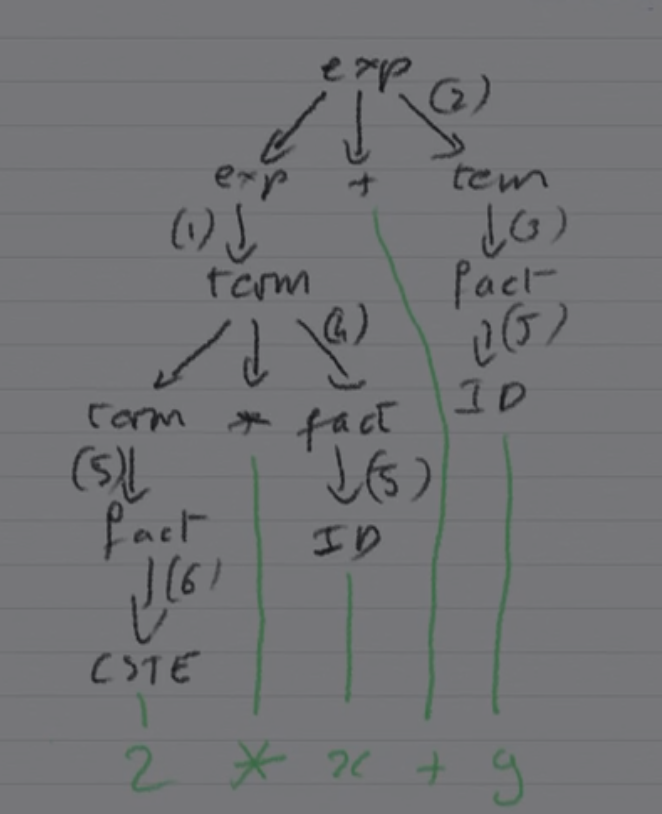 exp
(2)
exp + term
(1) (3)
term fact
(4) (5)
term * fact ID
(5) (5)
fact ID
(6)
CSTE
2 * x + y